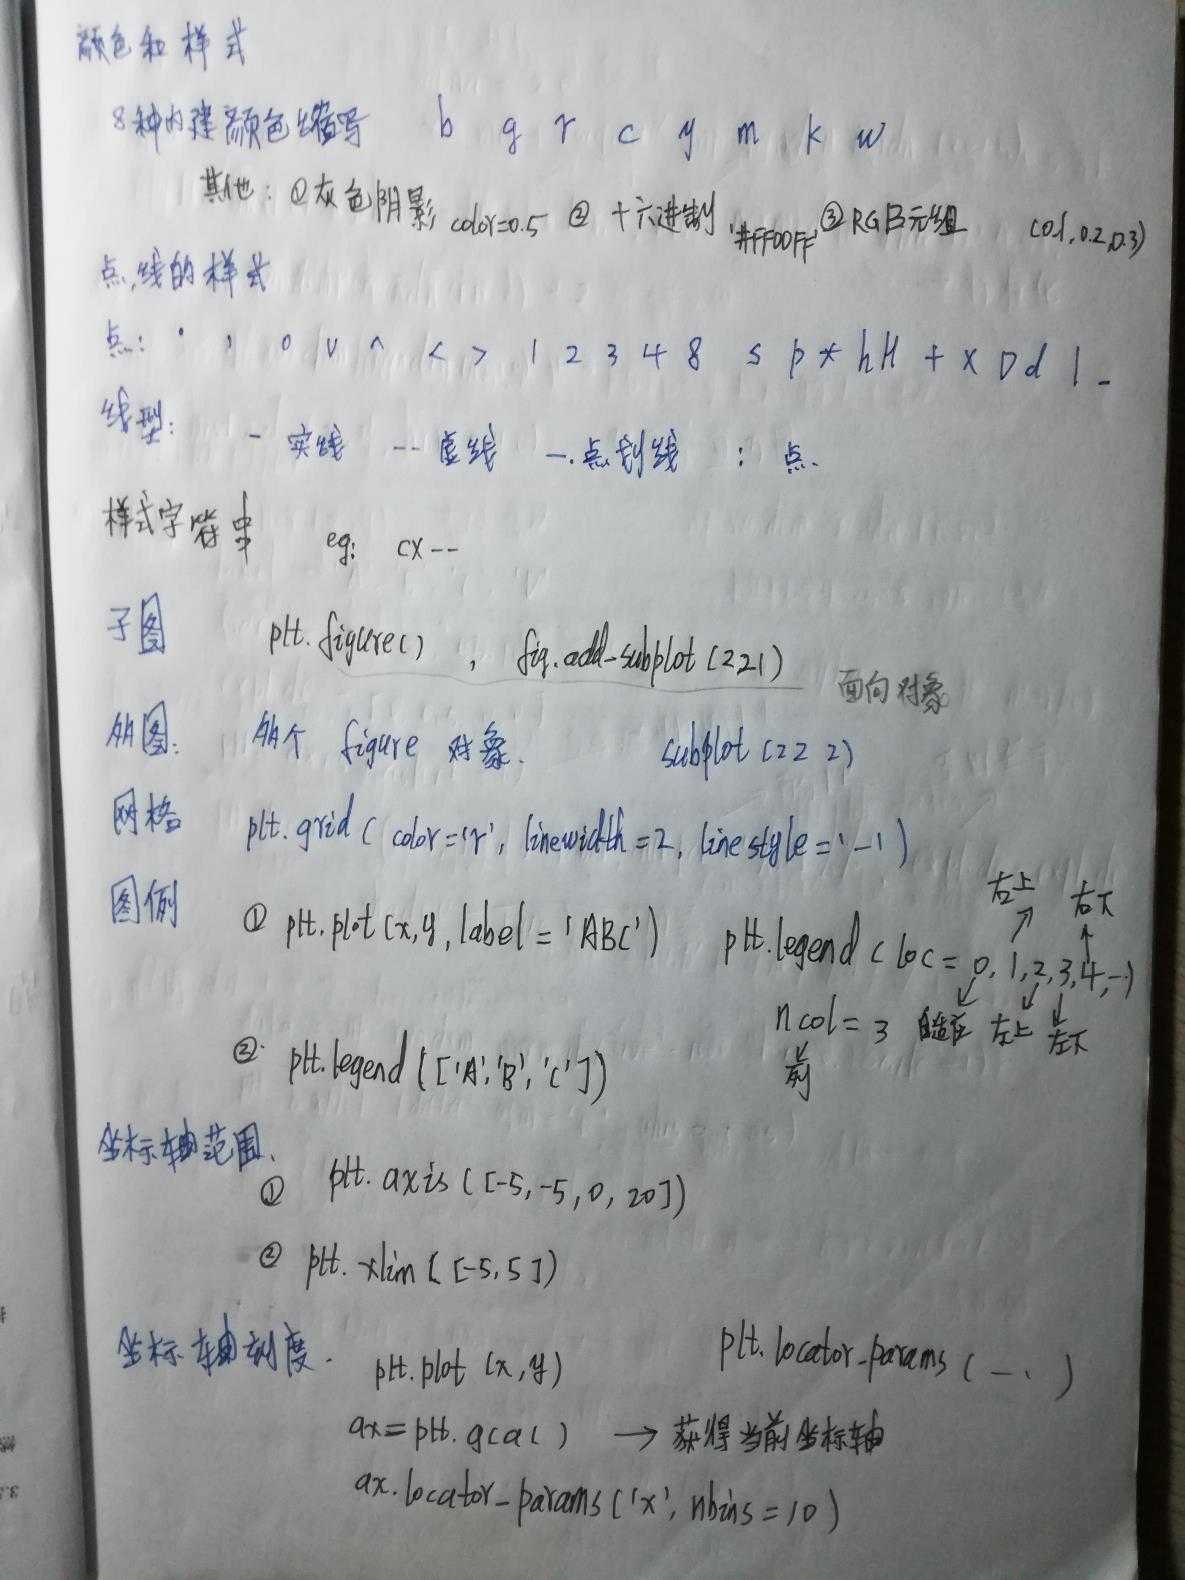 颜色和样式
8种内建颜色缩写 b g r c y m k w
其他: ①灰色阴影 color=0.5 ② 十六进制 '#FF00FF' ③RGB元组 (0.1,0.2,0.3)
点,线的样式
点: . , o v ^ < > 1 2 3 4 8 s p * h H + x D d | _
线型: - 实线 -- 虚线 -. 点划线 : 点
样式字符串 eg: cx--
子图 plt.figure() , fig.add_subplot(221)
面向对象
多图: 多个 figure 对象. subplot(222)
网格 plt.grid( color='r', linewidth=2, linestyle='-')
图例 ① plt.plot(x,y,label='ABC') plt.legend(loc=0,1,2,3,4,-)
右上 右下
ncol=3 自适应 左上 左下
列
② plt.legend(['A','B','C'])
坐标轴范围.
① plt.axis([-5,-5,0,20])
② plt.xlim([-5,5])
坐标轴刻度. plt.plot(x,y) plt.locator_params(—.)
ax=plt.gca() → 获得当前坐标轴
ax.locator_params('x', nbins=10)